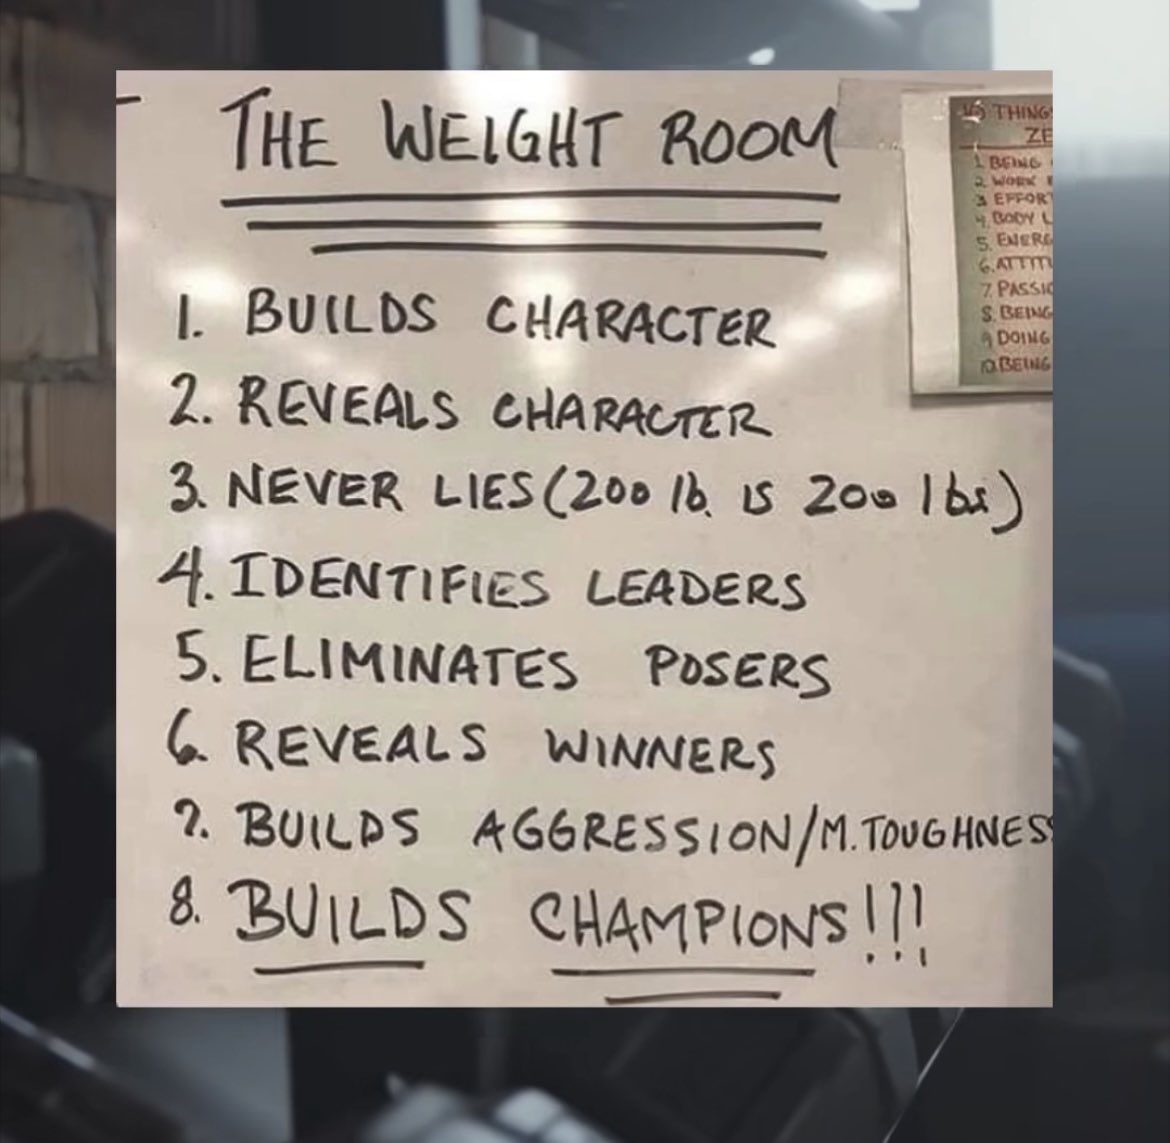 THE WEIGHT ROOM
1. BUILDS CHARACTER
2. REVEALS CHARACTER
3. NEVER LIES (200 lb. IS 200 lbs)
4. IDENTIFIES LEADERS
5. ELIMINATES POSERS
6. REVEALS WINNERS
7. BUILDS AGGRESSION/M. TOUGHNESS
8. BUILDS CHAMPIONS!!!
10 THINGS
ZE
1. BEING
2. WORK
3. EFFORT
4. BODY L
5. ENERG
6. ATTITU
7. PASSIO
8. BEING
9. DOING
10. BEING